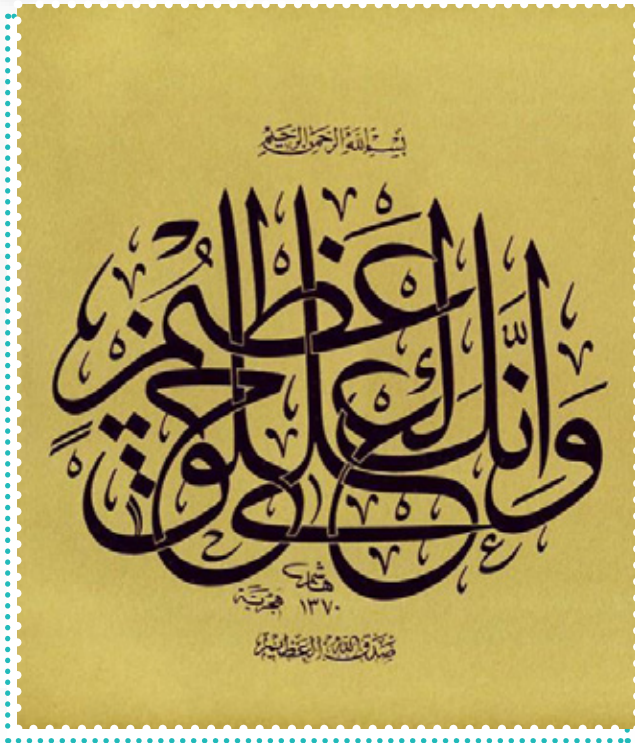 بسم الله الرحمن الرحيم
وَإِنَّكَ لَعَلَىٰ خُلُقٍ عَظِيمٍ
هاشم
١٣٧٠ هجرية
صدق الله العظيم